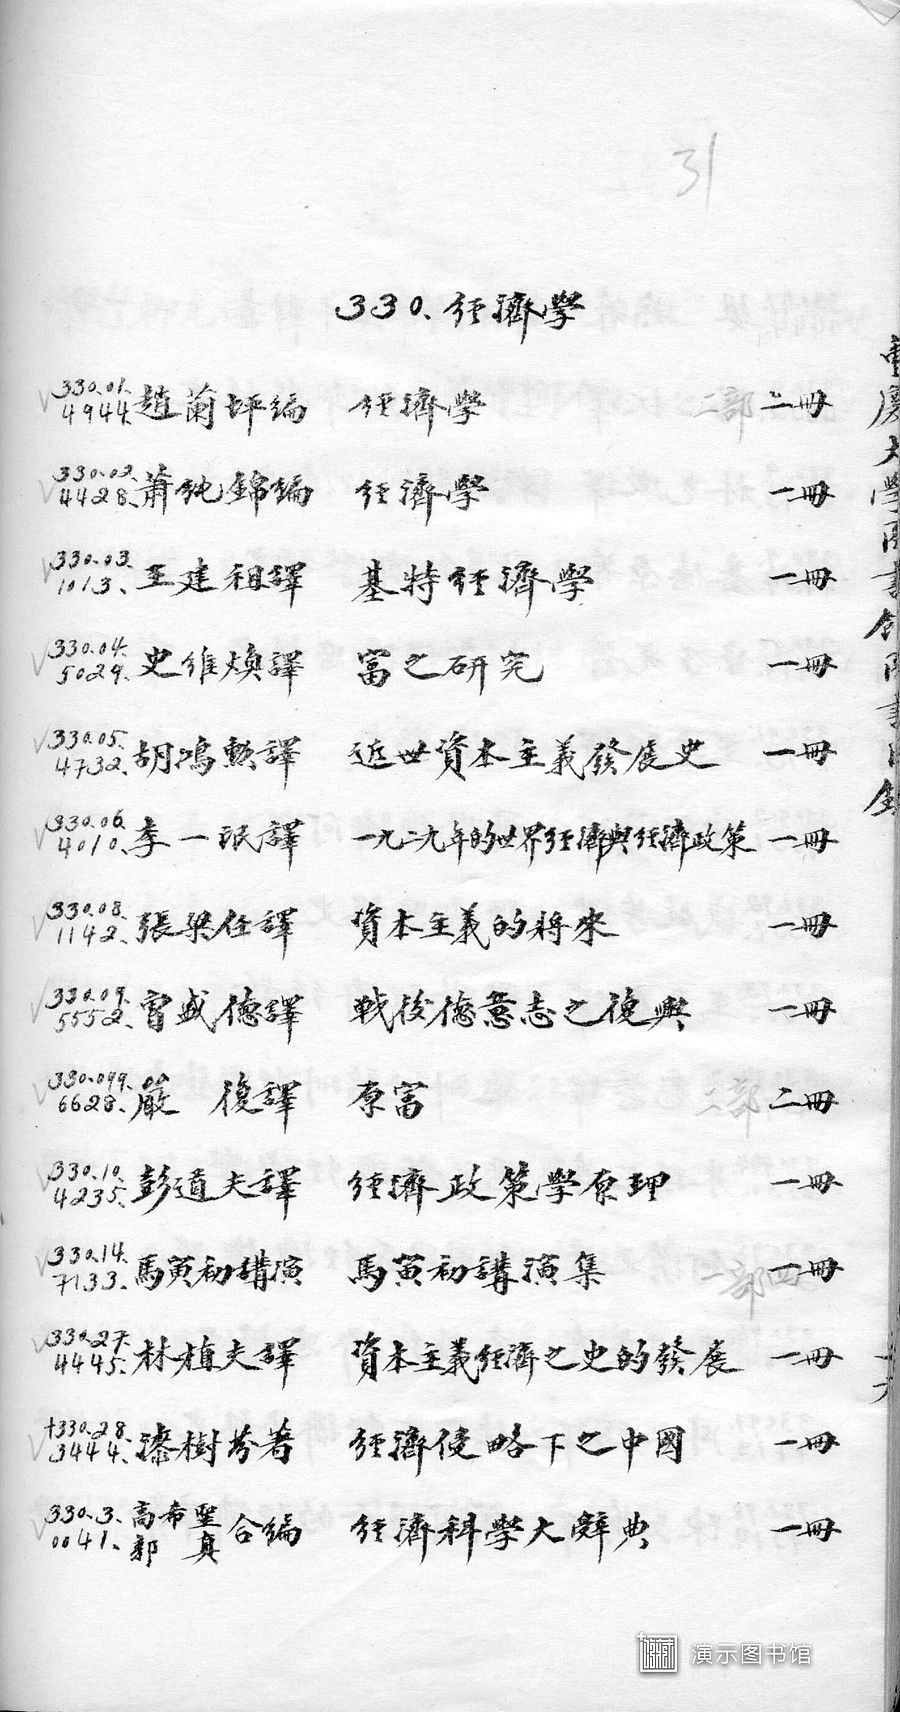 31
330. 經濟學
330.01. 4944. 趙蘭坪編 經濟學 二部 二冊
330.02. 4428. 蕭純錦編 經濟學 一冊
330.03. 1013. 王建祖譯 基特經濟學 一冊
330.04. 5029. 史維煥譯 富之研究 一冊
330.05. 4732. 胡鴻勲譯 近世資本主義發展史 一冊
330.06. 4010. 李一氓譯 一九二九年的世界經濟與經濟政策 一冊
330.08. 1142. 張梁任譯 資本主義的將來 一冊
330.09. 5552. 曾盛德譯 戰後德意志之復興 一冊
330.099. 6628. 嚴 復譯 原富 二部 二冊
330.10. 4235. 彭道夫譯 經濟政策學原理 一冊
330.14. 7133. 馬寅初講演 馬寅初講演集 一部四 一冊
330.27. 4445. 林植夫譯 資本主義經濟之史的發展 一冊
+330.28. 3444. 漆樹芬著 經濟侵略下之中國 一冊
330.3. 0041. 高希聖 郭 真 合編 經濟科學大辭典 一冊
重慶大學圖書館圖書目錄
一六
演示图书馆